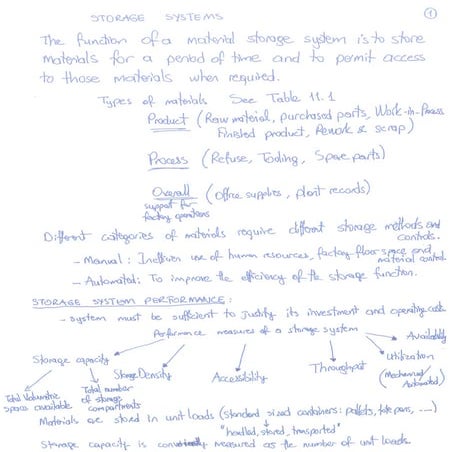 STORAGE SYSTEMS
1
The function of a material storage system is to store
materials for a period of time and to permit access
to those materials when required.
Types of materials See Table 11.1
Product (Raw material, purchased parts, Work-in-Process
Finished product, Rework & scrap)
Process (Refuse, Tooling, Spare parts)
Overall (Office supplies, plant records)
support for
factory operations
Different categories of materials require different storage methods and
controls.
- Manual: Inefficient use of human resources, factory floor space and
material control.
- Automated: To improve the efficiency of the storage function.
STORAGE SYSTEM PERFORMANCE:
- system must be sufficient to justify its investment and operating costs
Performance measures of a storage system
Availability
Storage capacity
Storage Density
Accessibility
Throughput
Utilization
(Mechanical/
Automated)
Total Volumetric
space available
Total number
of storage
compartments
Materials are stored in unit loads (standard sized containers: pallets, tote pans, ....)
"handled, stored, transported"
Storage capacity is measured as the number of unit loads.